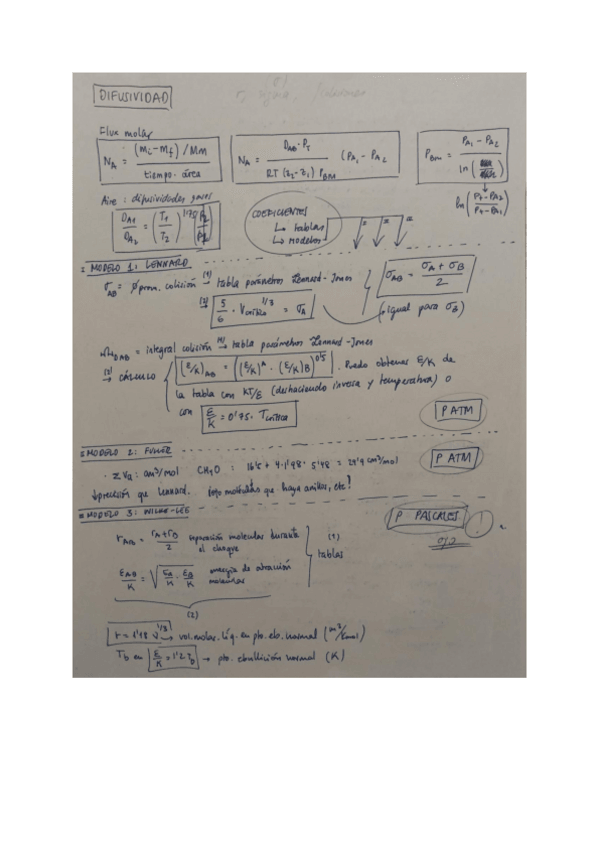 DIFUSIVIDAD
Flux molar
N_A = (m_i - m_f) / Mm / tiempo · área
N_A = D_AB · P_T / RT (z_2 - z_1) P_BM (P_A1 - P_A2)
P_BM = P_A1 - P_A2 / ln( )
ln (P_T - P_A2 / P_T - P_A1)
Aire: difusividades gases
D_A1 / D_A2 = (T_1 / T_2)^1'75 (P_2 / P_1)
COEFICIENTES
↳ tablas
↳ modelos
MODELO 1: LENNARD
σ_AB = Ø prom. colisión (1)→ tabla parámetros Lennard-Jones
σ_AB = σ_A + σ_B / 2
(2)→ 5/6 · V crítico^1/3 = σ_A
(igual para σ_B)
Ω_DAB = integral colisión (1)→ tabla parámetros Lennard-Jones
(2)→ CÁLCULO (E/K)_AB = ((E/K)A · (E/K)B)^0'5. Puedo obtener E/K de
la tabla con KT/E (deshaciendo inversa y temperatura) o
con E/K = 0'75 · T crítica
P ATM
MODELO 2: FULLER
· Σ V_a: cm³/mol CH₄O = 16'5 + 4·1'98 + 5'48 = 29'9 cm³/mol
P ATM
↓ precisión que Lennard. Ojo moléculas que haya anillos, etc!
MODELO 3: WILKE-LEE
P PASCALES !
ojo
r_AB = r_A + r_B / 2 separación moléculas durante
el choque
(1)
tablas
E_AB / K = √(E_A/K · E_B/K) energía de atracción
moléculas
(2)
r = 1'18 V^1/3 → vol. molar. líq. en pto. eb. normal (m³/Kmol)
T_b en E/K = 1'21 T_b → pto. ebullición normal (K)